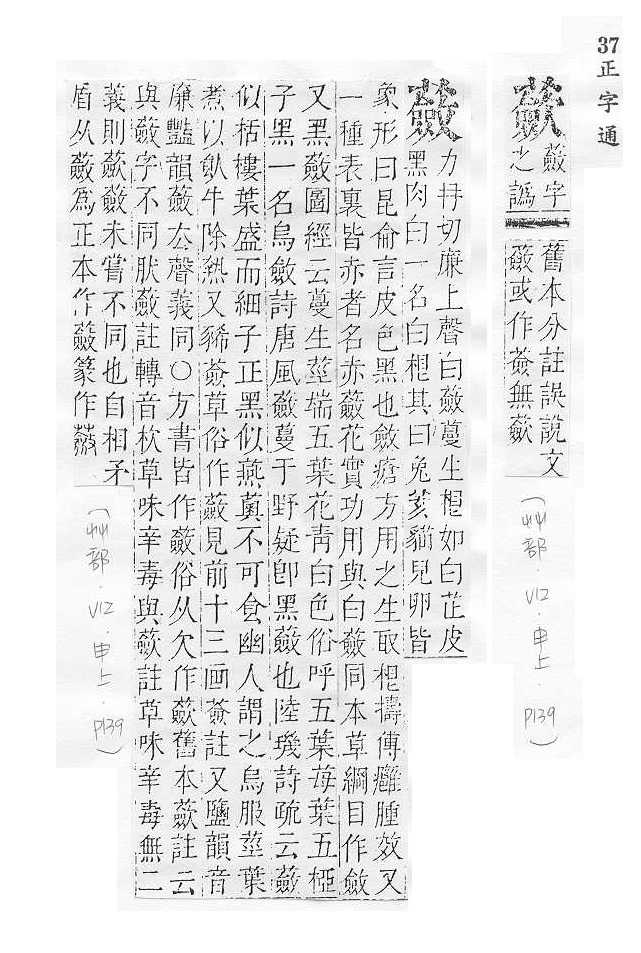 37正字通
蘝
蘞字
之譌
舊本分註誤說文
蘞或作薟無蘝
(艸部．V12．申上．P139)
蘞
力冉切廉上聲白蘞蔓生根如白芷皮
黑肉白一名白根其曰兔荄貓兒卵皆
象形曰昆侖言皮色黑也斂瘡方用之生取根擣傅癰腫效又
一種表裏皆赤者名赤蘞花實功用與白蘞同本草綱目作斂
又黑蘞圖經云蔓生莖耑五葉花靑白色俗呼五葉苺葉五椏
子黑一名烏斂詩唐風蘞蔓于野疑卽黑蘞也陸璣詩疏云蘞
似栝樓葉盛而細子正黑似燕薁不可食幽人謂之烏服莖葉
煮以飮牛除熱又豨薟草俗作蘞見前十三画薟註又鹽韻音
廉豔韻蘞去聲義同○方書皆作蘞俗从欠作蘝舊本蘝註云
與蘞字不同肰蘞註轉音杴草味辛毒與蘝註草味辛毒無二
義則蘝蘞未嘗不同也自相矛
盾从蘞爲正本作蘞篆作
(艸部．V12．申上．P139)